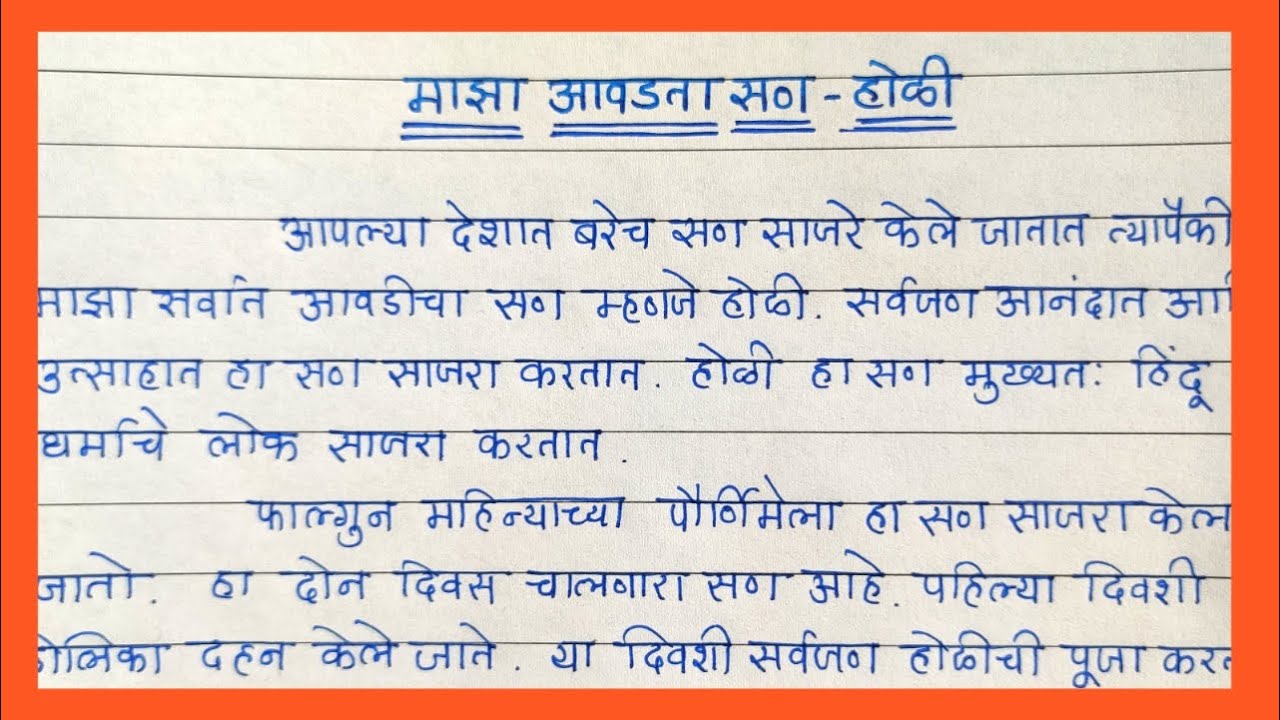 माझा आवडता सण - होळी
आपल्या देशात बरेच सण साजरे केले जातात त्यापैकी
माझा सर्वात आवडीचा सण म्हणजे होळी. सर्वजण आनंदात
उत्साहात हा सण साजरा करतात. होळी हा सण मुख्यतः हिंदू
धर्माचे लोक साजरा करतात.
फाल्गुन महिन्याच्या पौर्णिमेला हा सण साजरा
जातो. हा दोन दिवस चालणारा सण आहे. पहिल्या दिवशी
दहन केले जाते. या दिवशी सर्वजण होळीची पूजा